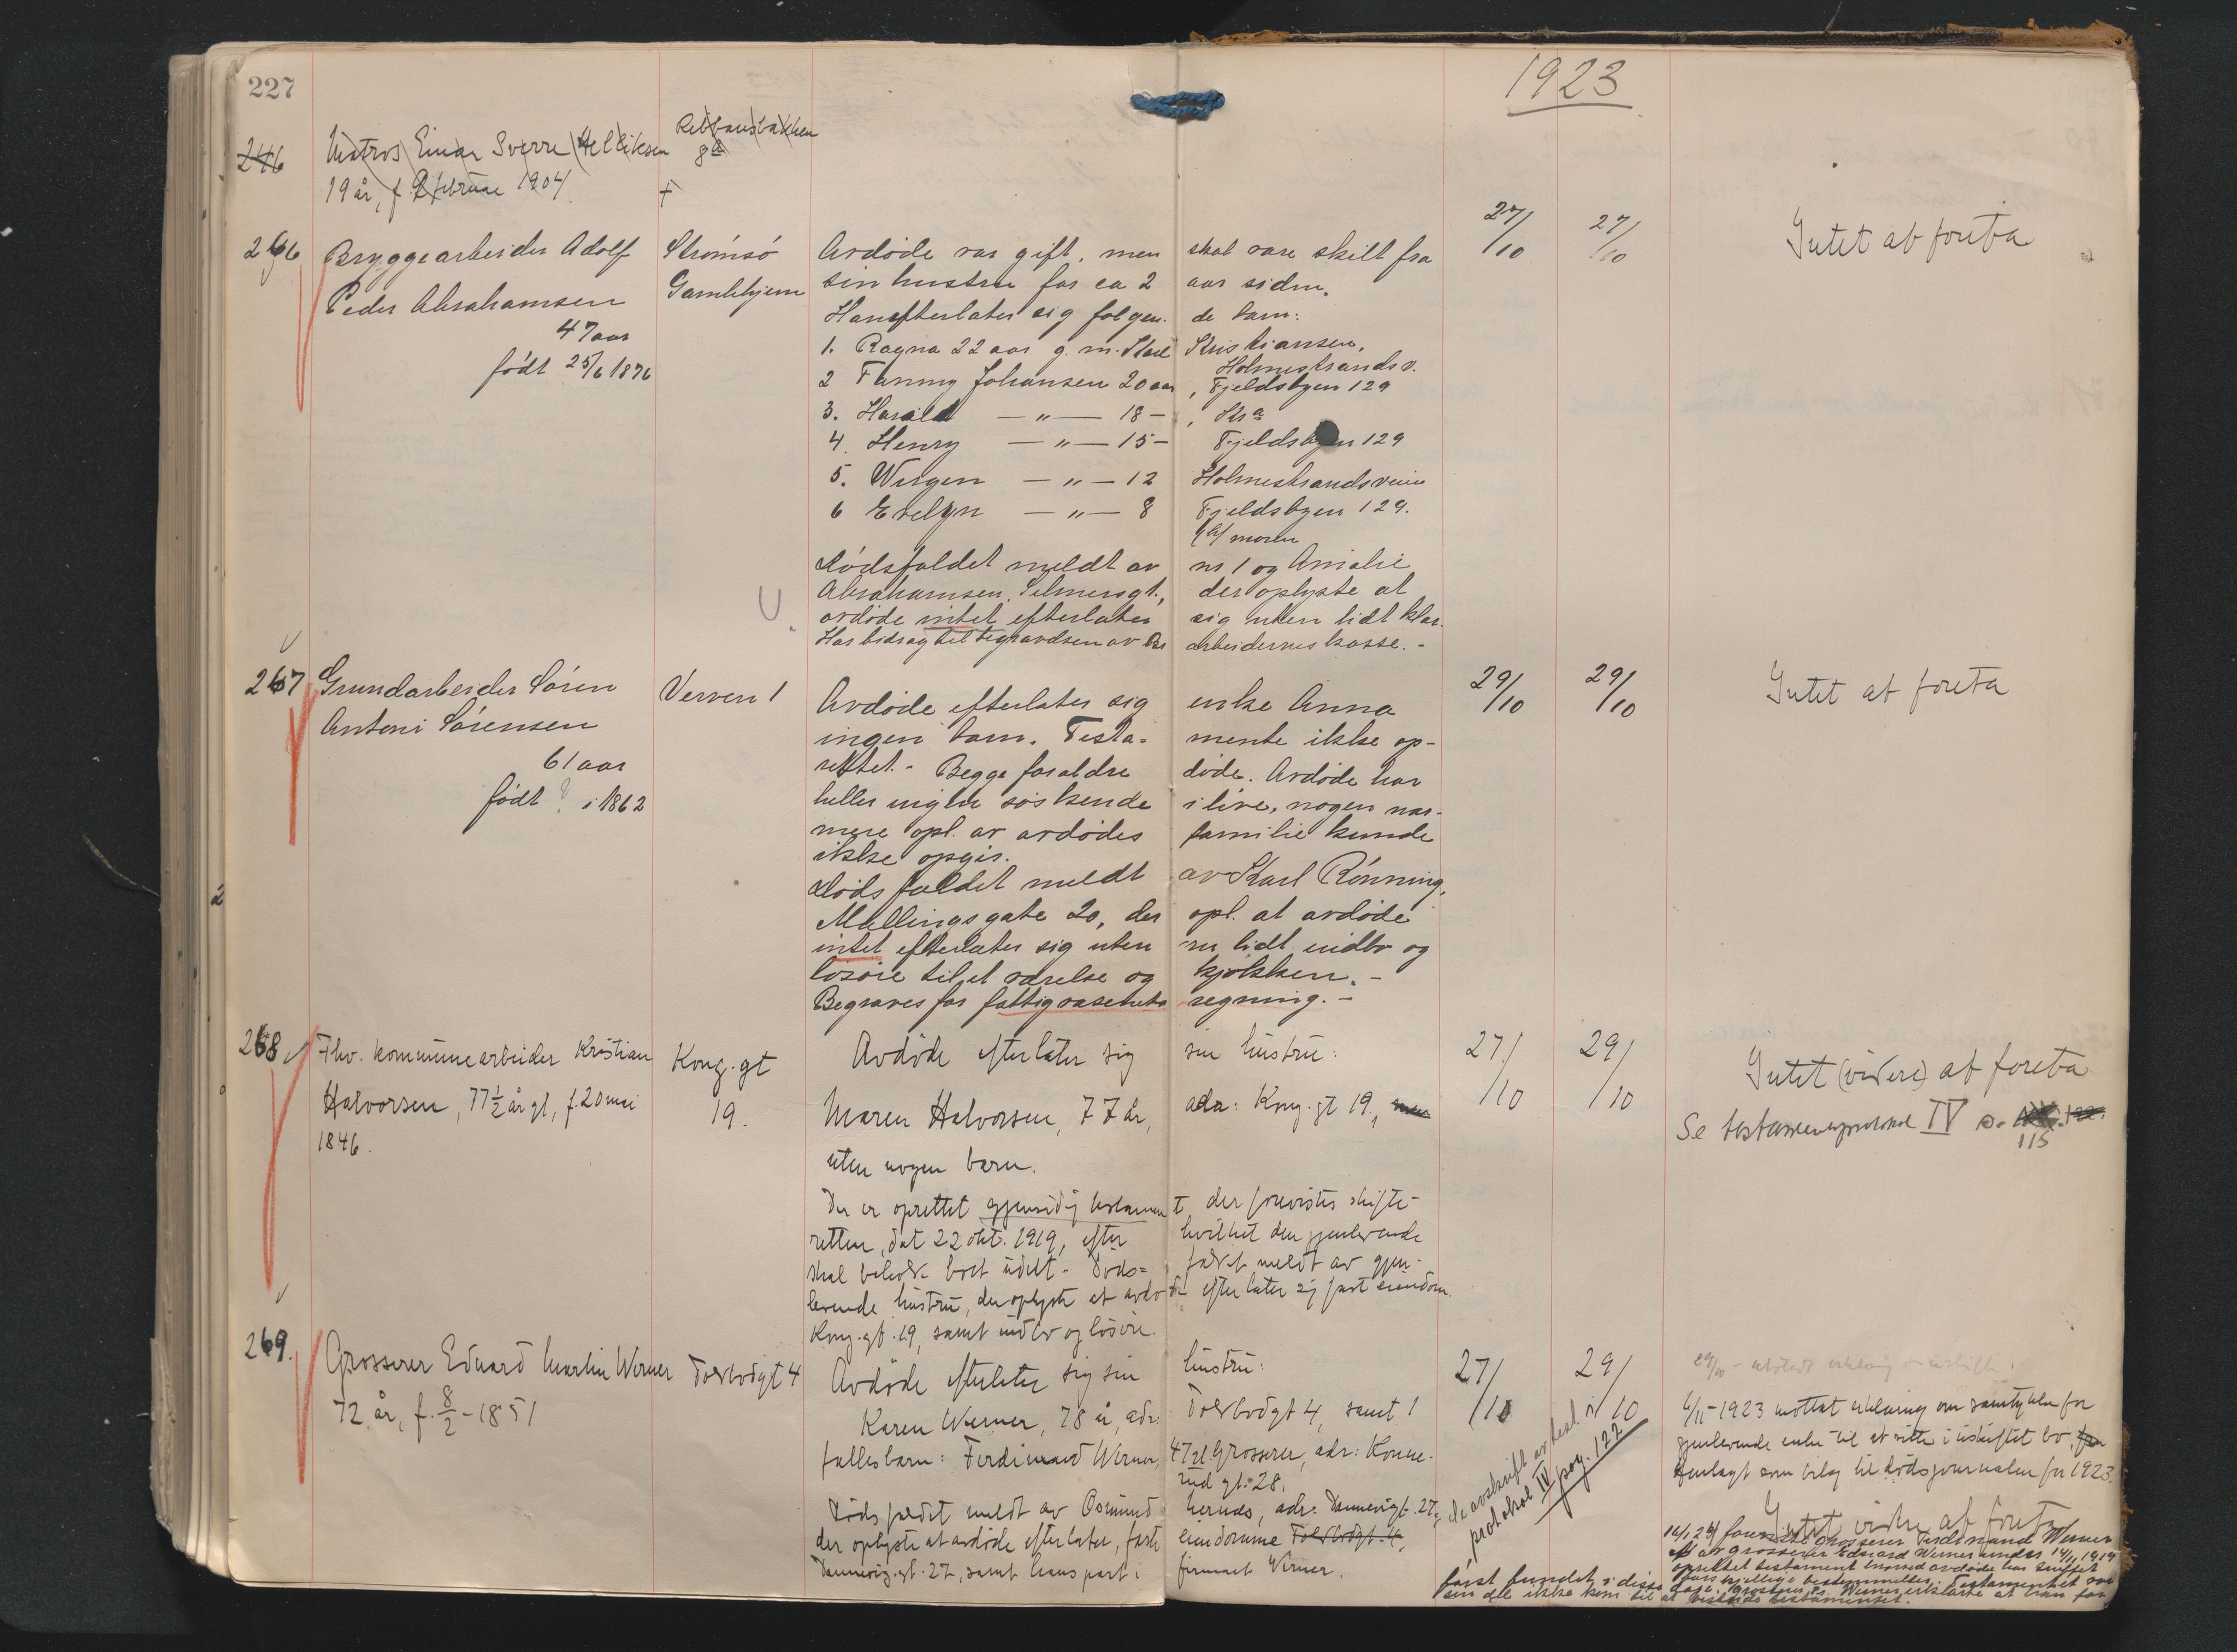 227
1923
246 Matros Einar Sverre Helliksen
8a
19 år, f. 2 februar 1904 +
266 Bryggearbeider Adolf Strømsø Avdøde var gift, men skal være skilt fra 27/10 27/10 Intet at foreta
Peder Abrahamsen Gamlehjem sin hustru for ca 2 aar siden.
47 aar Han efterlater sig følgen- de barn:
født 25/6 1876 1. Ragna 22 aar g. m. Karl Kristiansen,
Holmestrandsv.
2 Fanny Johansen 20 aar, Fjeldsbyen 129
3. Harald — " — 18 — , Kra
4. Henry — " — 15 — Fjeldsbyen 129
5. — " — 12 Holmestrandsveien
6 Evelyn — " — 8 Fjeldsbyen 129.
moren
Dødsfaldet meldt av nr 1 og Amalie
Abrahamsen, Selmersgt., der oplyste at
avdøde intet efterlater sig uten lidt klær.
Har bidrag til begravelsen av arbeidernes kasse. -
267 Grundarbeider Søren Verven 1 Avdøde efterlater sig enke Anna 29/10 29/10 Intet at foreta
Antoni Sørensen ingen barn. Testa- mente ikke op-
61 aar rettet. - Begge forældre døde. Avdøde har
født ? i 1862 heller ingen søskende i live, nogen nær-
mere opl. av avdødes familie kunde
ikke opgis.
Dødsfaldet meldt av Karl Rønning,
Mællingsgate 20, der opl. at avdøde
intet efterlater sig uten lidt indbo og
løsøre til et værelse og kjøkken. -
Begraves for fattigvæsenets regning. -
268 Fhv. kommunearbeider Kristian Kong. gt Avdøde efterlater sig sin hustru: 27/10 29/10 Intet (videre) at foreta
Halvorsen, 77½ år gl, f. 20 mai 19. Maren Halvorsen, 77 år, adr: Kong. gt 19, men Se testamentsprotokol IV s. 115
1846. uten nogen barn.
Der er oprettet gjensidig testament, der forevistes skifte-
retten, dat 22 okt. 1919, efter hvilket den gjenlevende
skal beholde boet udelt. - Døds- faldet meldt av gjen-
levende hustru, der oplyste at avdøde efterlater sig fast eiendom
Kong. gt. 19, samt indbo og løsøre.
269. Grosserer Edvard Martin Werner Tolbodgt 4 Avdøde efterlater sig sin hustru: 27/10 29/10
72 år, f. 8/2 - 1851 Karen Werner, 78 år, adr: Tolbodgt 4, samt 1
fællesbarn: Ferdinand Werner, 47 år Grosserer, adr: Konne-
rud gt. 28.
Dødsfaldet meldt av Osmund adr: Dannevigt. 27,
der oplyste at avdøde efterlater, faste eiendomme Tolbodgt. 4,
Dannevig. gt. 27, samt hans part i firmaet Werner.
Se avskrift av test. i
protokol IV pag. 122
6/11-1923 mottat erklæring om samtykke for
gjenlevende enke til at sitte i uskiftet bo,
henlagt som bilag til dødsjournalen for 1923.
Intet videre at foreta
16/1 24 foreviste Grosserer Ferdinand Werner
et av grosserer Edvard Werner under 14/11 1919
oprettet testament hvorved avdøde har truffet
forskjellige bestemmelser. Testamentet var
først fundet i disse dage. Grosserer F. Werner erklærte at han for
sin del ikke kom til at bestride testamentet.